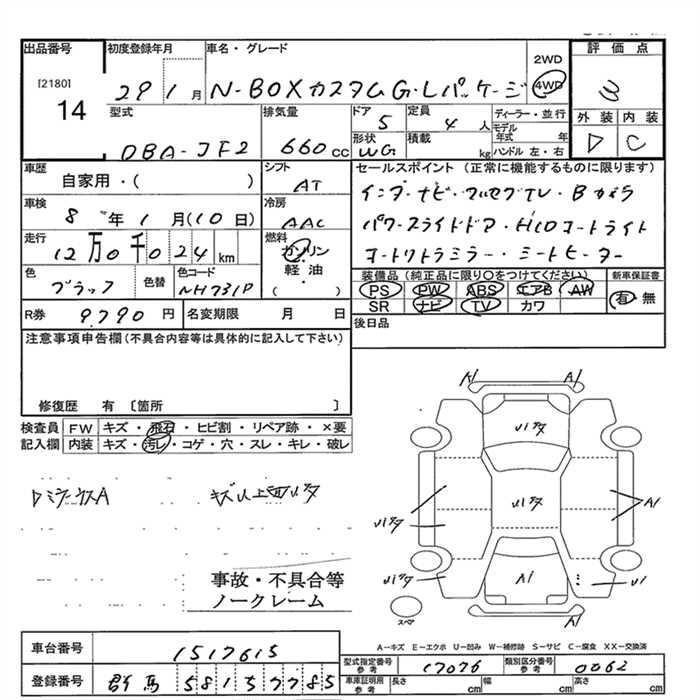 出品番号 初度登録年月 車名・グレード 評価点
[2180] 14 29 1月 N-BOXカスタムG・Lパッケージ 2WD 4WD 3
型式 排気量 ドア 定員 ディーラー・並行 外装 内装
DBA-JF2 660cc 5 4人 モデル年式 年 D C
形状 WG 積載 kg ハンドル 左・右
車歴 シフト セールスポイント (正常に機能するものに限ります)
自家用・( ) AT インターナビ・フルセグTV・Bカメラ
車検 冷房
8年1月(10日) AAC パワースライドドア・HIDオートライト
走行 燃料
12万0千024km ガソリン オートリトラミラー・シートヒーター
色 色替 色コード 軽油 装備品 (純正品に限り〇をつけてください) 新車保証書
ブラック NH731P ( ・ ) PS PW ABS エアB AW 有・無
SR ナビ TV カワ
R券 9790円 名変期限 月 日 後日品
注意事項申告欄(不具合内容等は具体的に記入して下さい)
修復歴 有 〔箇所 〕
検査員 FW キズ・飛石・ヒビ割・リペア跡・×要
記入欄 内装 キズ・汚レ・コゲ・穴・スレ・キレ・破レ
A1
U1 タ
A1
U1 タ
A1
U1 タ
U1 タ
A1
U1
スペア
事故・不具合等
ノークレーム
A-キズ E-エクボ U-凹み W-補修跡 S-サビ C-腐食 XX-交換済
車台番号 1517615
型式指定番号 参考 17076 類別区分番号 参考 0062
登録番号 群馬 581 5 7785
車庫証明用 参考 長さ cm 幅 cm 高さ cm